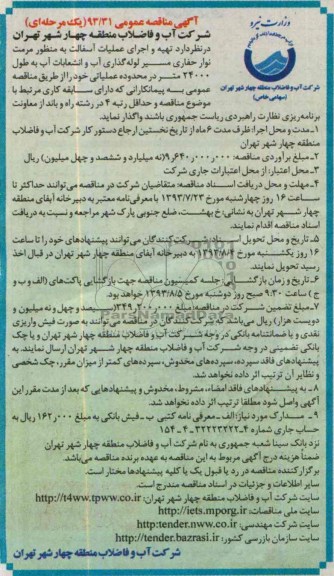 وزارت نیرو
شرکت آب و فاضلاب منطقه چهار شهر تهران
(سهامی خاص)
آگهی مناقصه عمومی ۹۳/۳۱ (یک مرحله‌ای)
شرکت آب و فاضلاب منطقه چهار شهر تهران
درنظردارد تهیه و اجرای عملیات آسفالت به منظور مرمت
نوار حفاری مسیر لوله‌گذاری آب و انشعابات آب به طول
۲۴۰۰۰ متر در محدوده عملیاتی خود را از طریق مناقصه
عمومی به پیمانکارانی که دارای سابقه کاری مرتبط با
موضوع مناقصه و حداقل رتبه ۴ در رشته راه و باند از معاونت
برنامه‌ریزی نظارت راهبردی ریاست جمهوری باشند واگذار نماید.
۱ـ مدت و محل اجرا: ظرف مدت ۶ ماه از تاریخ نخستین ارجاع دستور کار شرکت آب و فاضلاب
منطقه چهار شهر تهران
۲ـ مبلغ برآوردی مناقصه: ۹٫۶۴۰٫۰۰۰٫۰۰۰ (نه میلیارد و ششصد و چهل میلیون) ریال
۳ـ محل اعتبار: از محل اعتبارات جاری شرکت
۴ـ مهلت و محل دریافت اسناد مناقصه: متقاضیان شرکت در مناقصه می‌توانند حداکثر تا
ساعت ۱۶ روز چهارشنبه مورخ ۱۳۹۳/۷/۲۳ با معرفی‌نامه معتبر به دبیرخانه آبفای منطقه
چهار شهر تهران به نشانی: خ بهشت، ضلع جنوبی پارک شهر مراجعه و نسبت به دریافت
اسناد مناقصه اقدام نمایند.
۵ـ تاریخ و محل تحویل اسناد: شرکت‌کنندگان می‌توانند پیشنهادهای خود را تا ساعت
۱۶ روز یکشنبه مورخ ۱۳۹۳/۸/۴ به دبیرخانه آبفای منطقه چهار شهر تهران در قبال اخذ
رسید تحویل نمایند.
۶ـ تاریخ و زمان بازگشایی: جلسه کمیسیون مناقصه جهت بازگشایی پاکت‌های (الف و ب و
ج) ساعت ۹:۳۰ صبح روز دوشنبه مورخ ۱۳۹۳/۸/۵ خواهد بود.
۷ـ مبلغ تضمین شرکت در مناقصه: مبلغ ۳۴۹٫۲۰۰٫۰۰۰ (سیصد و چهل و نه میلیون و
دویست هزار) ریال می‌باشد که شرکت‌کنندگان در مناقصه می‌توانند به صورت فیش واریزی
نقدی و یا ضمانتنامه بانکی در وجه شرکت آب و فاضلاب منطقه چهار شهر تهران و یا چک
بانکی تضمینی در وجه شرکت آب و فاضلاب منطقه چهار شهر تهران ارسال نمایند. به
پیشنهادهای فاقد سپرده، سپرده‌های مخدوش، سپرده‌های کمتر از میزان مقرر، چک شخصی
و نظایر آن ترتیب اثر داده نخواهد شد.
۸ـ به پیشنهادهای فاقد امضاء، مشروط، مخدوش و پیشنهادهایی که بعد از مدت مقرر این
آگهی واصل شود مطلقا ترتیب اثر داده نخواهد شد.
۹ـ مدارک مورد نیاز: الف ـ معرفی نامه کتبی ب ـ فیش بانکی به مبلغ ۱۶۲٫۰۰۰ ریال به
حساب جاری شماره
نزد بانک سینا شعبه جمهوری به نام شرکت آب و فاضلاب منطقه چهار شهر تهران
ضمناً هزینه درج آگهی مربوط به این مناقصه به عهده برنده مناقصه می‌باشد.
برگزارکننده مناقصه در رد یا قبول یک یا کلیه پیشنهادها مختار است.
سایر اطلاعات و جزئیات در اسناد مناقصه مندرج است.
سایت شرکت آب و فاضلاب منطقه چهار شهر تهران: http://t4ww.tpww.co.ir
سایت ملی مناقصات: http://iets.mporg.ir
سایت شرکت مهندسی: http:tender.nww.co.ir
سایت سازمان بازرسی کشور: http://tender.bazrasi.ir
شرکت آب و فاضلاب منطقه چهار شهر تهران